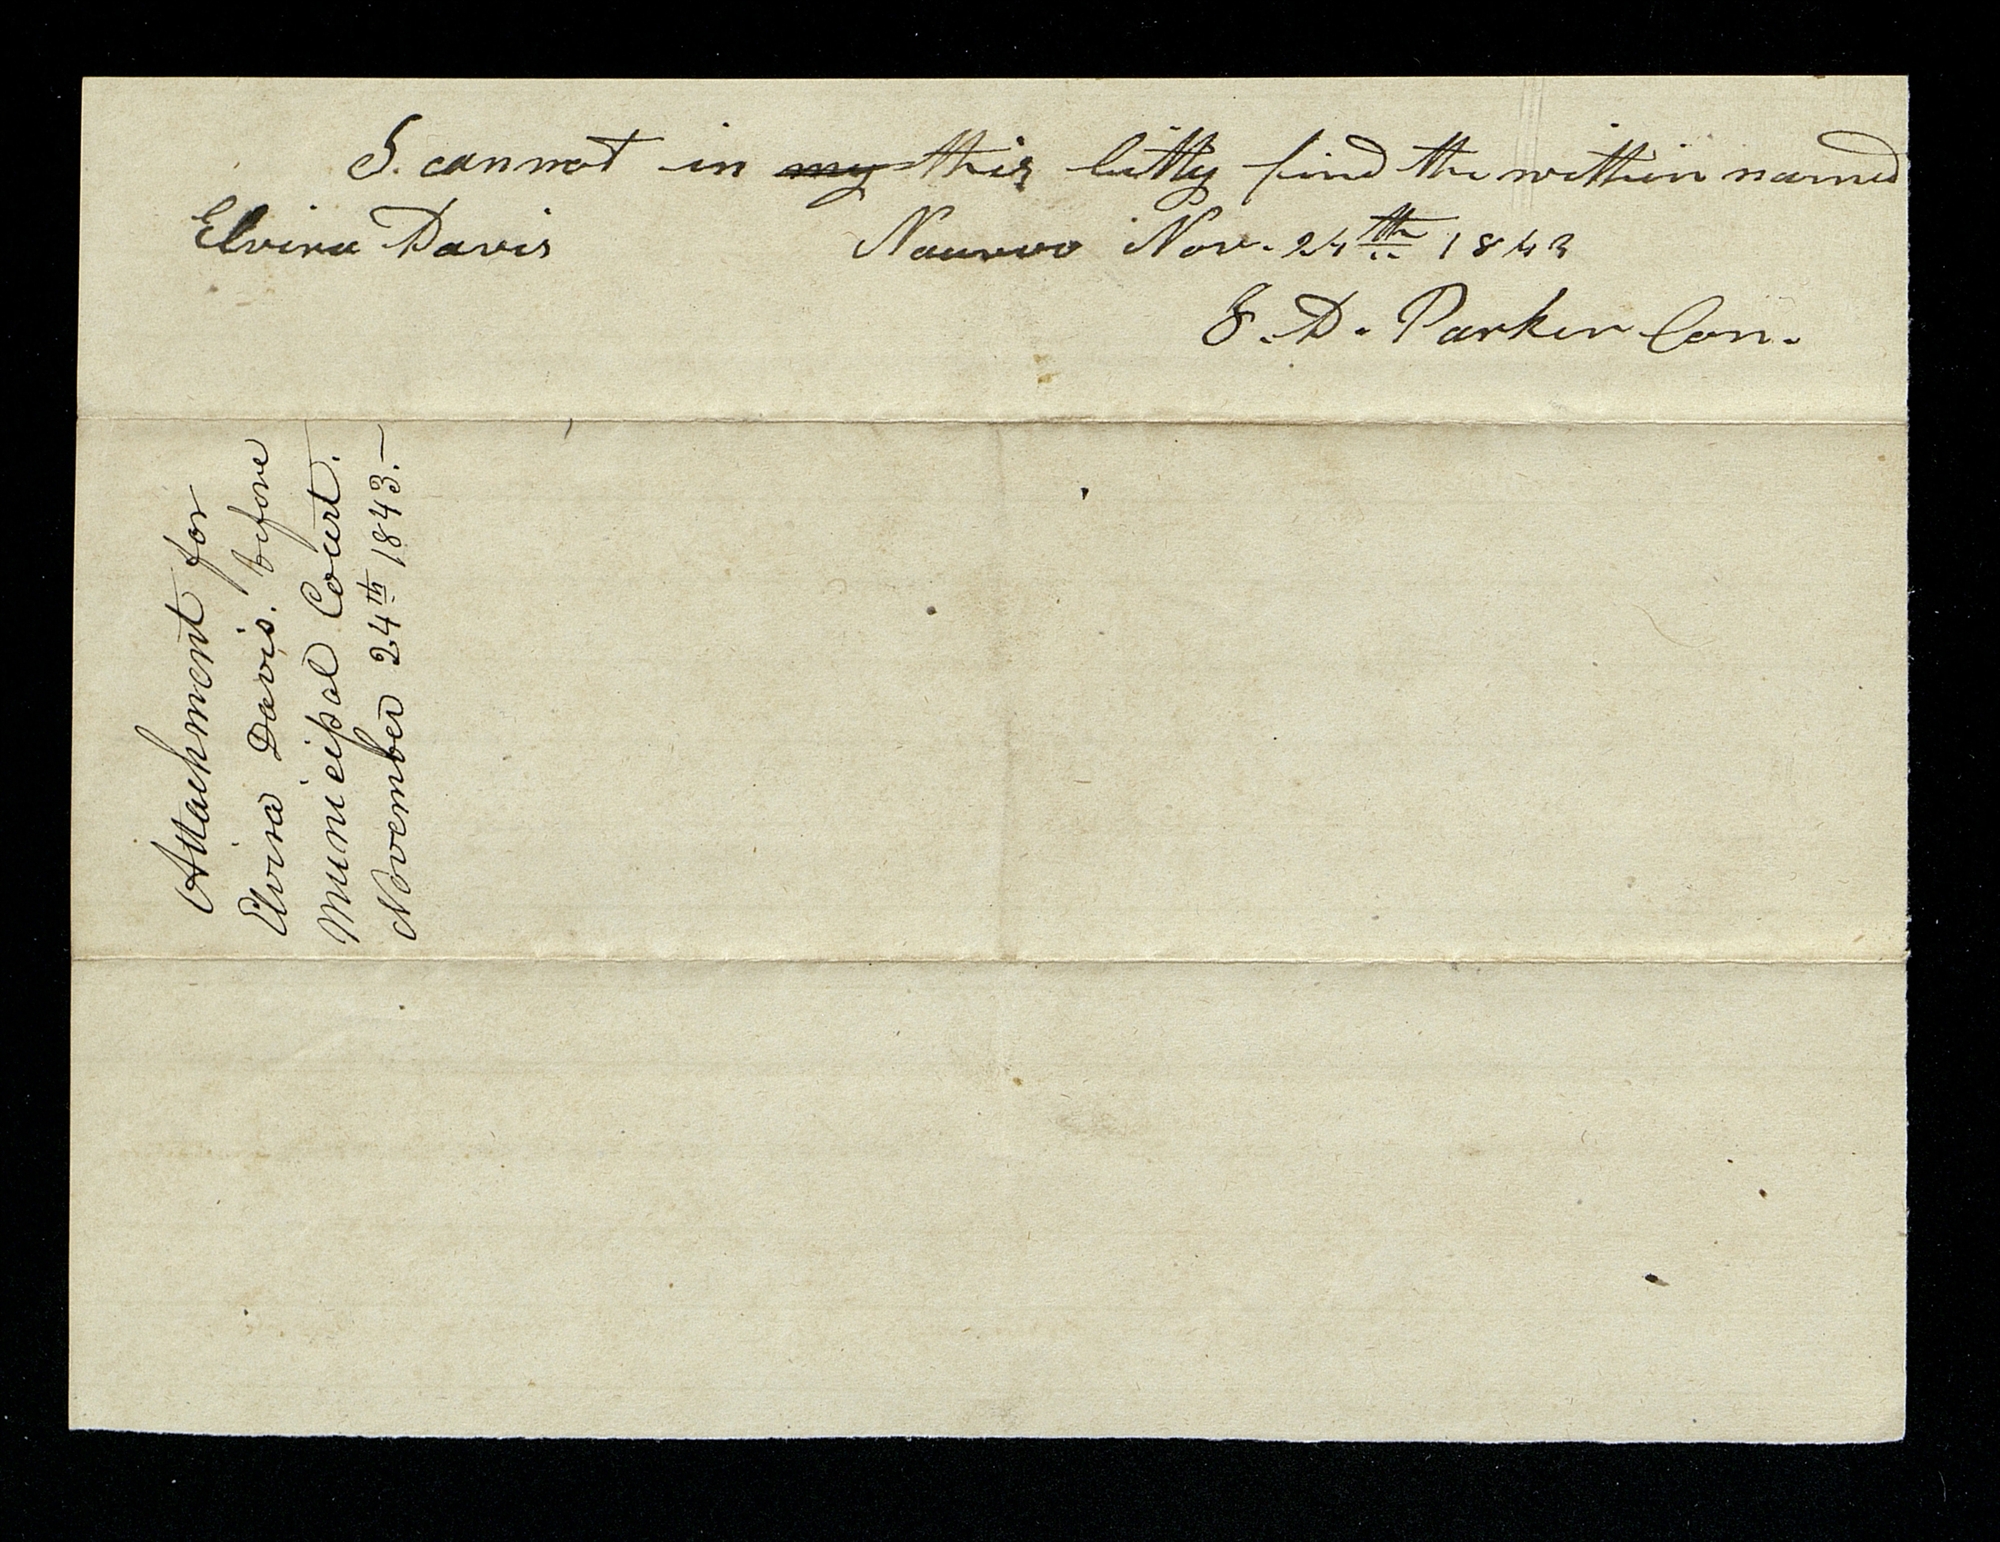 I. cannot in my this Citty find the within named
Elvira Davis Nauvoo Nov. 24th 1843
J. D. Parker Con.
Attachment for
Elvira Davis. before
Municipal Court.
November 24th 1843.—